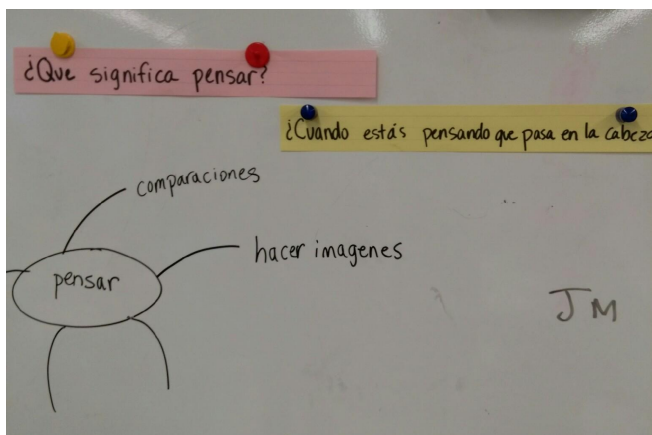 ¿Que significa pensar?
¿Cuando estás pensando que pasa en la cabeza
comparaciones
hacer imagenes
pensar
JM